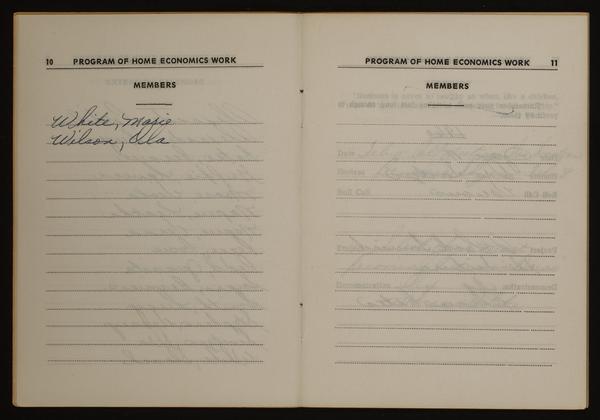 10 PROGRAM OF HOME ECONOMICS WORK
MEMBERS
White, Marie
Wilson, Ola
PROGRAM OF HOME ECONOMICS WORK 11
MEMBERS